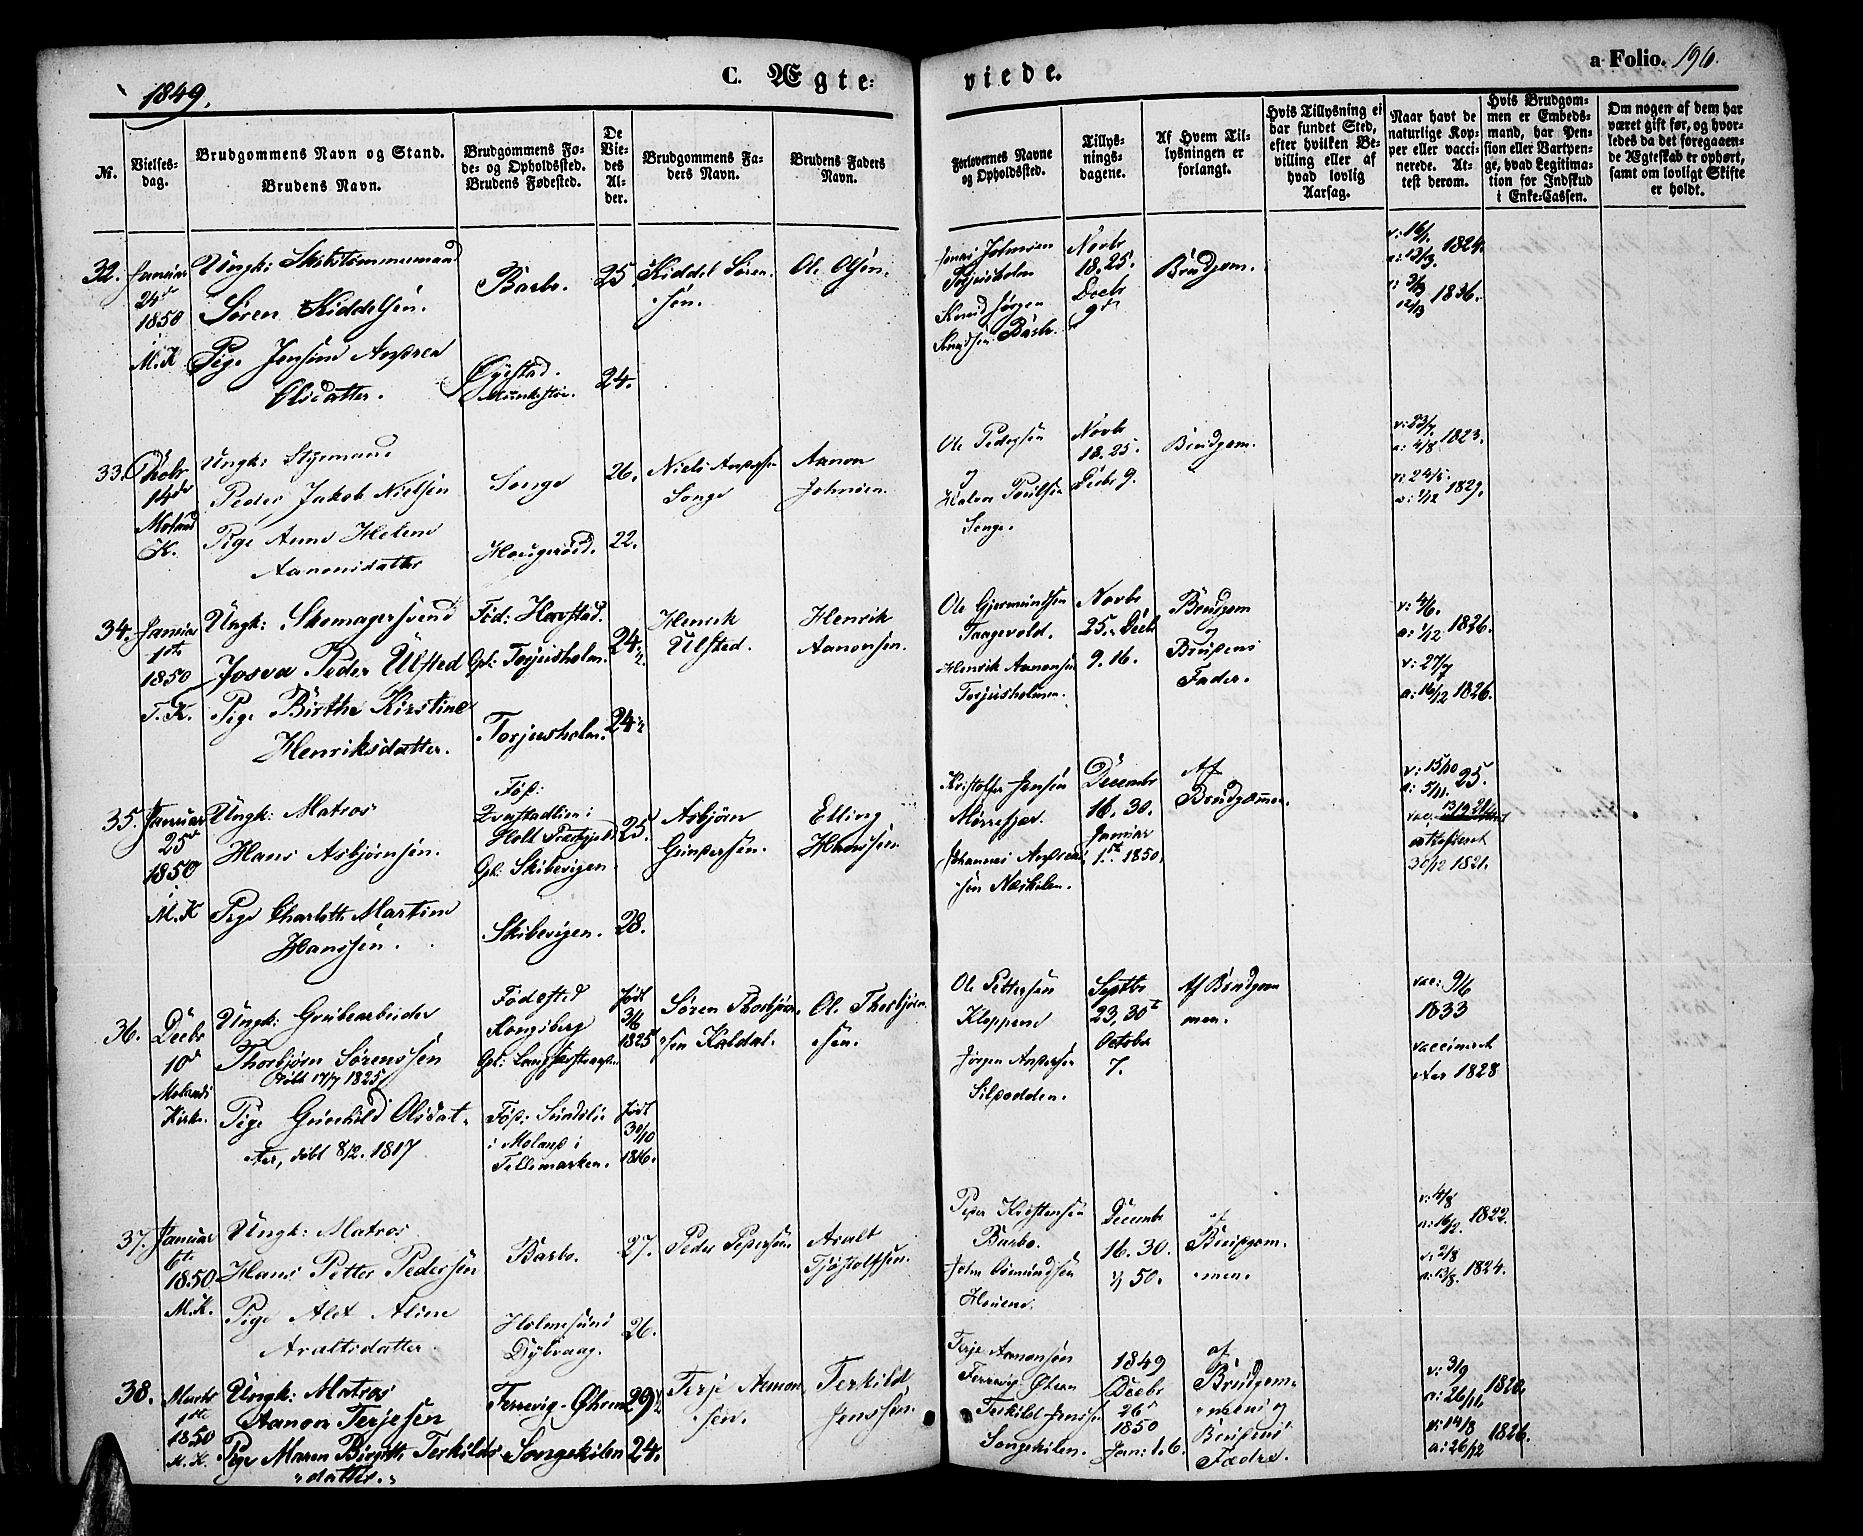 1849.
C. Ægte-
viede.
a Folio. 196.
No.
Vielses-
dag.
Brudgommens Navn og Stand.
Brudens Navn.
Brudgommens Fø-
de- og Opholdssted.
Brudens Fødested.
De
Vie-
des
Al-
der.
Brudgommens Fa-
ders Navn.
Brudens Faders
Navn.
Forlovernes Navne
og Opholdssted.
Tillys-
nings-
dagene.
Af Hvem Til-
lysningen er
forlangt.
Hvis Tillysning ei
har fundet Sted,
efter hvilken Be-
villing eller af
hvad lovlig
Aarsag.
Naar havt de
naturlige Kop-
per eller vacci-
nerede. At-
test derom.
Hvis Brudgom-
men er Embeds-
mand, har Pen-
sion eller Vartpen-
ge, hvad Legitima-
tion for Indskud
i Enke-Cassen.
Om nogen af dem har
været gift før, og hvor-
ledes da det foregaaen-
de Ægteskab er ophørt,
samt om lovligt Skifte
er holdt.
32.
Januar
24de
1850
i
M. K
Ungk: Skibstømmermand
Søren Kiddelsen.
Pige Jensine Andrea
Olsdatter.
Barbo.
Øyestad.
25
24.
Kiddel Søren-
sen.
Ole Olsen
Torjusholm
Knud Jørgen
Knudsen Barbo.
Novbr
18. 25.
Decbr
9de
Brudgom.
v: 16/1
a: 13/3. 1824.
1836.
33.
14de
Moland
K.
Ungk: Styrmand
Peder Jakob Nielsen
Pige Anne Helene
Aanonsdatter
Songe
Hougerød.
26.
22.
Niels Andersen
Songe
Aanon
Johnsen.
Ole Pedersen
og
Halvor Poulsen
Songe.
Novbr
18. 25.
Decbr 9.
Brudgom.
v: 23/7
a: 4/8 1823.
v: 24/5.
a: 1/12 1829.
34.
Januar
1ste
1850
T. K.
Ungk: Skomagersvend
Josva Peder Ulsted
Pige Birthe Kirstine
Henriksdatter.
Fød: Havstad.
Opl: Torjusholm.
Torjusholm.
24 1/2
24 1/2
Henrik
Ulsted.
Henrik
Aanonsen.
Ole Gjermundsen
Taagevold.
Henrik Aanonsen
Torjusholmen.
Novbr
25. Decbr
9. 16.
Brudgom
og
Brudens
Fader.
v: 4/6.
a: 1/12 1826.
v: 27/7
a: 16/12 1826.
35.
Januar
25de
1850
i
M. K
Ungk: Matros
Hans Asbjørnsen.
Pige Charlotte Martine
Hanssen.
Fød:
Holt Præstegjeld
Opl: Skibevigen.
Skibevigen.
25.
28.
Asbjørn
Gundersen.
Elling
Hanssen.
Kristoffer Jensen
Mørrefjær.
Johannes Andreas-
sen Næskilen.
Decembr
16. 30.
Januar
1ste 1850.
Af
Brudgommen.
v: 15/10
a: 5/11. 25.
vac:
attesteret
30/12 1821.
36.
Decbr
10de
Molands
Kirke.
Ungk: Grubearbeider
Thorbjørn Sørenssen
døbt 17/7 1825
Pige Gunhild Olsdat-
ter, døbt 8/12. 1817
Fødested
Kongsberg
Fød: Sundsli
i Moland i
Tellemarken.
født
3/6
1825
født
30/10
1816.
Søren Thorbjørn-
sen Kaldal.
Ole Thorbjørn-
sen.
Ole Pettersen
Kloppene
Jørgen Andersen
Silpodden.
Septbr
23, 30te
October
7.
Af Brudgom
men.
vac: 9/6
1833
vaccineret
1828
37.
Januar
6te
1850.
M. K.
Ungk: Matros
Hans Petter Pedersen
Pige Alet Aline
Araltsdatter.
Barbo.
Holmesund i
Dybvaag.
27.
26.
Peder Pedersen
Aralt
Tjøstolfsen.
Peder Kristensen
Barbo.
John Osmundsen
Houene.
Decembr
16. 30.
1/1 50.
af
Brudgom-
men.
v: 4/8
a: 16/12. 1822.
v: 2/8
a: 13/8. 1824.
38.
Marts
1ste
1850
M. K.
Ungk: Matros
Aanon Terjesen
Pige Maren Birgitte Terkilds-
datter.
Fervevig-Øhren
Songekilen
29 1/2
24.
Terje Aanon-
sen.
Terkild
Jenssen.
Terje Aanonsen
Fervevig Øhren
Terkild Jenssen
Songekilen.
1849
Decbr
26de
1850
Jan: 1. 6.
af
Brudgom-
mens og
Brudens
Fædre.
v: 3/9
a: 26/11 1820.
v: 14/8
a: 26/12 1826.